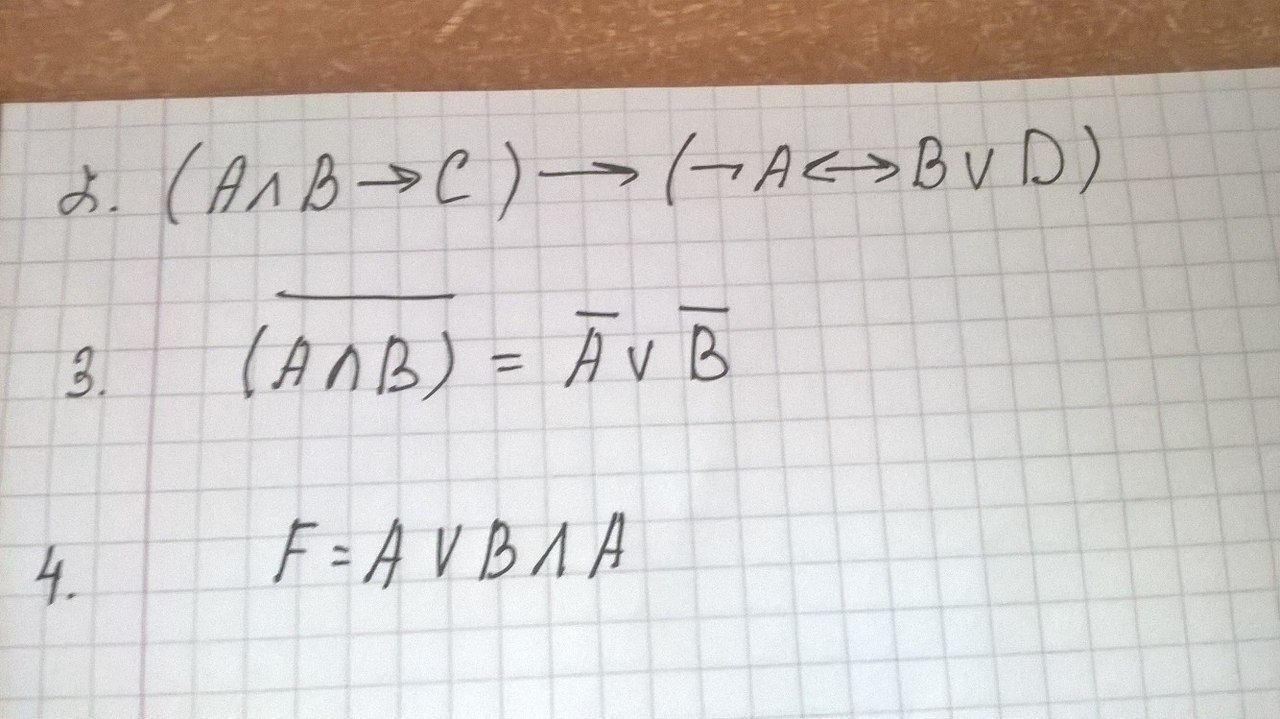 2. (A∧B→C)→(¬A↔B∨D)
3. \overline{(A∧B)} = \overline{A}∨\overline{B}
4. F=A∨B∧A